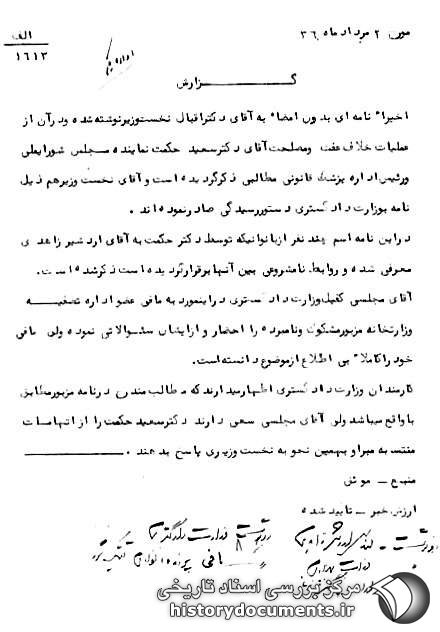 مورخ ۲ مرداد ماه ۳۶
الف
۱۶۱۳
گزارش
اخیراً نامه ای بدون امضاء به آقای دکتراقبال نخست‌وزیرنوشته‌شده ودرآن از
عملیات خلاف عفت ومصلحت‌آقای دکترسعید حکمت نماینده مجلس شورایملی
ورئیس اداره پزشک قانونی مطالبی ذکرگردیده است و آقای نخست وزیرهم ذیل
نامه بوزارت دادگستری دستوررسیدگی صادرنموده اند .
دراین نامه اسم چند نفر ازبانوانیکه توسط دکتر حکمت به آقای اردشیر زاهدی
معرفی شده و روابط نامشروعی بین آنها برقرارگردیده است ذکرشده است.
آقای مجلسی کفیل وزارت دادگستری دراینمورد به مافی عضو اداره تصفیه
وزارتخانه مزبورمشکوک ونامبرده را احضار و ازایشان سئوالاتی نموده ولی مافی
خود راکاملا بی اطلاع ازموضوع دانسته‌است.
کارمندان وزارت دادگستری اظهارمیدارند که مطالب مندرج درنامه مزبورمطابق
با واقع میباشد ولی آقای مجلسی سعی دارند دکترسعید حکمت را از اتهامات
منتسبه مبرا و بهمین نحو به نخست وزیری پاسخ بدهند .
منبع - موثق
ارزش خبر - تایید شده
مرکز بررسی اسناد تاریخی
historydocuments.ir